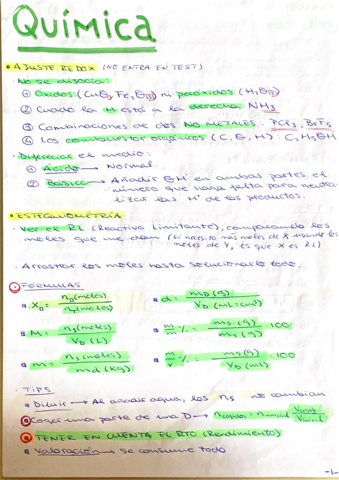 Química
• AJUSTE REDOX (NO ENTRA EN TEST)
· No se disocia:
① Óxidos (CuO, Fe₂O₃) ni peróxidos (H₂O₂)
② Cuando la H está a la derecha NH₃
③ Combinaciones de dos NO METALES. PCl₃, BrF₅
④ Los compuestos orgánicos (C, O, H). C₂H₅OH
· Diferencias el medio:
① Ácido → Normal.
② Básico → Añadir OH⁻ en ambas partes el
número que haga falta para neutra-
lizar las H⁺ de los productos.
• ESTEQUIOMETRÍA
· Ver el RL (Reactivo Limitante), comparando los
moles que me dan (si necesito más moles de X
moles de Y, es que X es RL)
· Arrastrar los moles hasta solucionarlo todo.
· FÓRMULAS
X_D = n_D(moles) / n_T(moles)
d = m_D(g) / V_D (mL=cm³)
M = n_s(moles) / V_D (L)
m/m % = m_s(g) / m_T(g) · 100
m = n_s(moles) / m_d (Kg)
m/v % = m_s(g) / V_D(mL) · 100
· TIPS
Diluir → Al añadir agua, los n_s no cambian
Coger una parte de una D →
TENER EN CUENTA EL RTO (Rendimiento)
Valoración → se consume todo
-1-